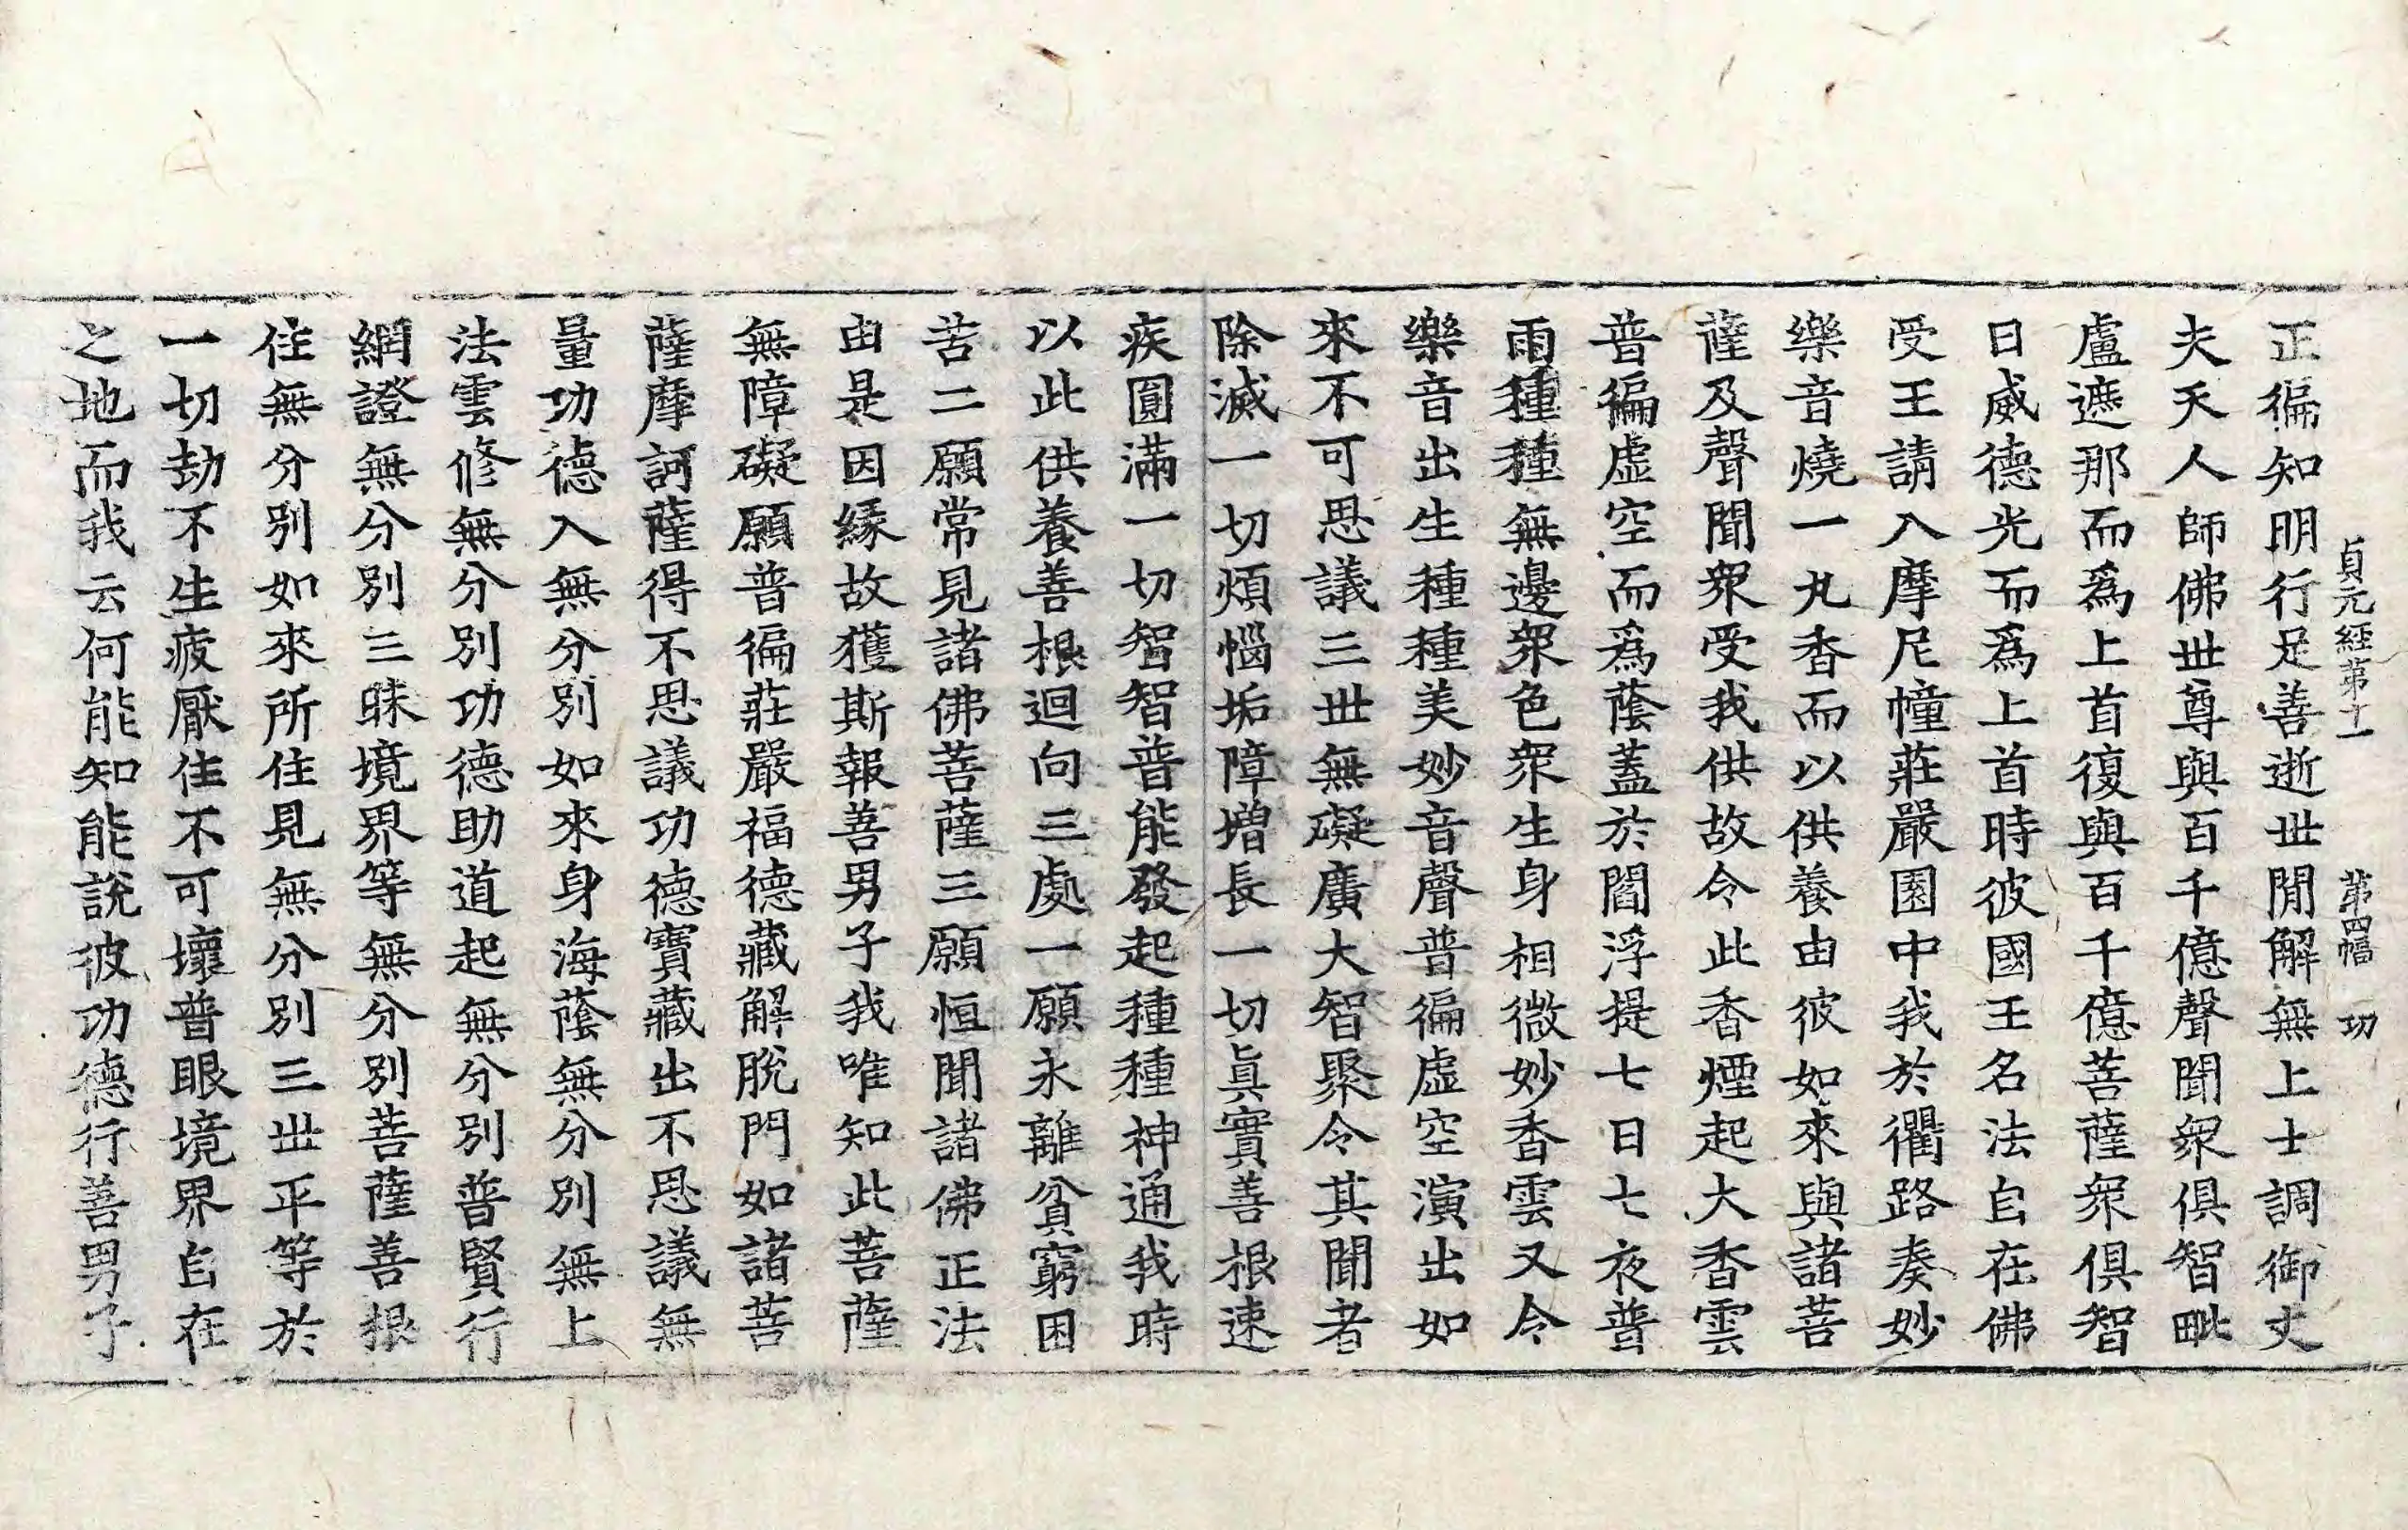 貞元經第十一　第四幅　功
正徧知明行足善逝世閒解無上士調御丈
夫天人師佛世尊與百千億聲聞衆俱智毗
盧遮那而爲上首復與百千億菩薩衆俱智
日威德光而爲上首時彼國王名法自在佛
受王請入摩尼幢莊嚴園中我於衢路奏妙
樂音燒一丸香而以供養由彼如來與諸菩
薩及聲聞衆受我供故令此香煙起大香雲
普徧虛空而爲蔭蓋於閻浮提七日七夜普
雨種種無邊衆色衆生身相微妙香雲又令
樂音出生種種美妙音聲普徧虛空演出如
來不可思議三世無礙廣大智聚令其聞者
除滅一切煩惱垢障增長一切眞實善根速
疾圓滿一切智智普能發起種種神通我時
以此供養善根迴向三處一願永離貧窮困
苦二願常見諸佛菩薩三願恒聞諸佛正法
由是因緣故獲斯報善男子我唯知此菩薩
無障礙願普徧莊嚴福德藏解脫門如諸菩
薩摩訶薩得不思議功德寶藏出不思議無
量功德入無分別如來身海蔭無分別無上
法雲修無分別功德助道起無分別普賢行
網證無分別三昧境界等無分別菩薩善根
住無分別如來所住見無分別三世平等於
一切劫不生疲厭住不可壞普眼境界自在
之地而我云何能知能說彼功德行善男子